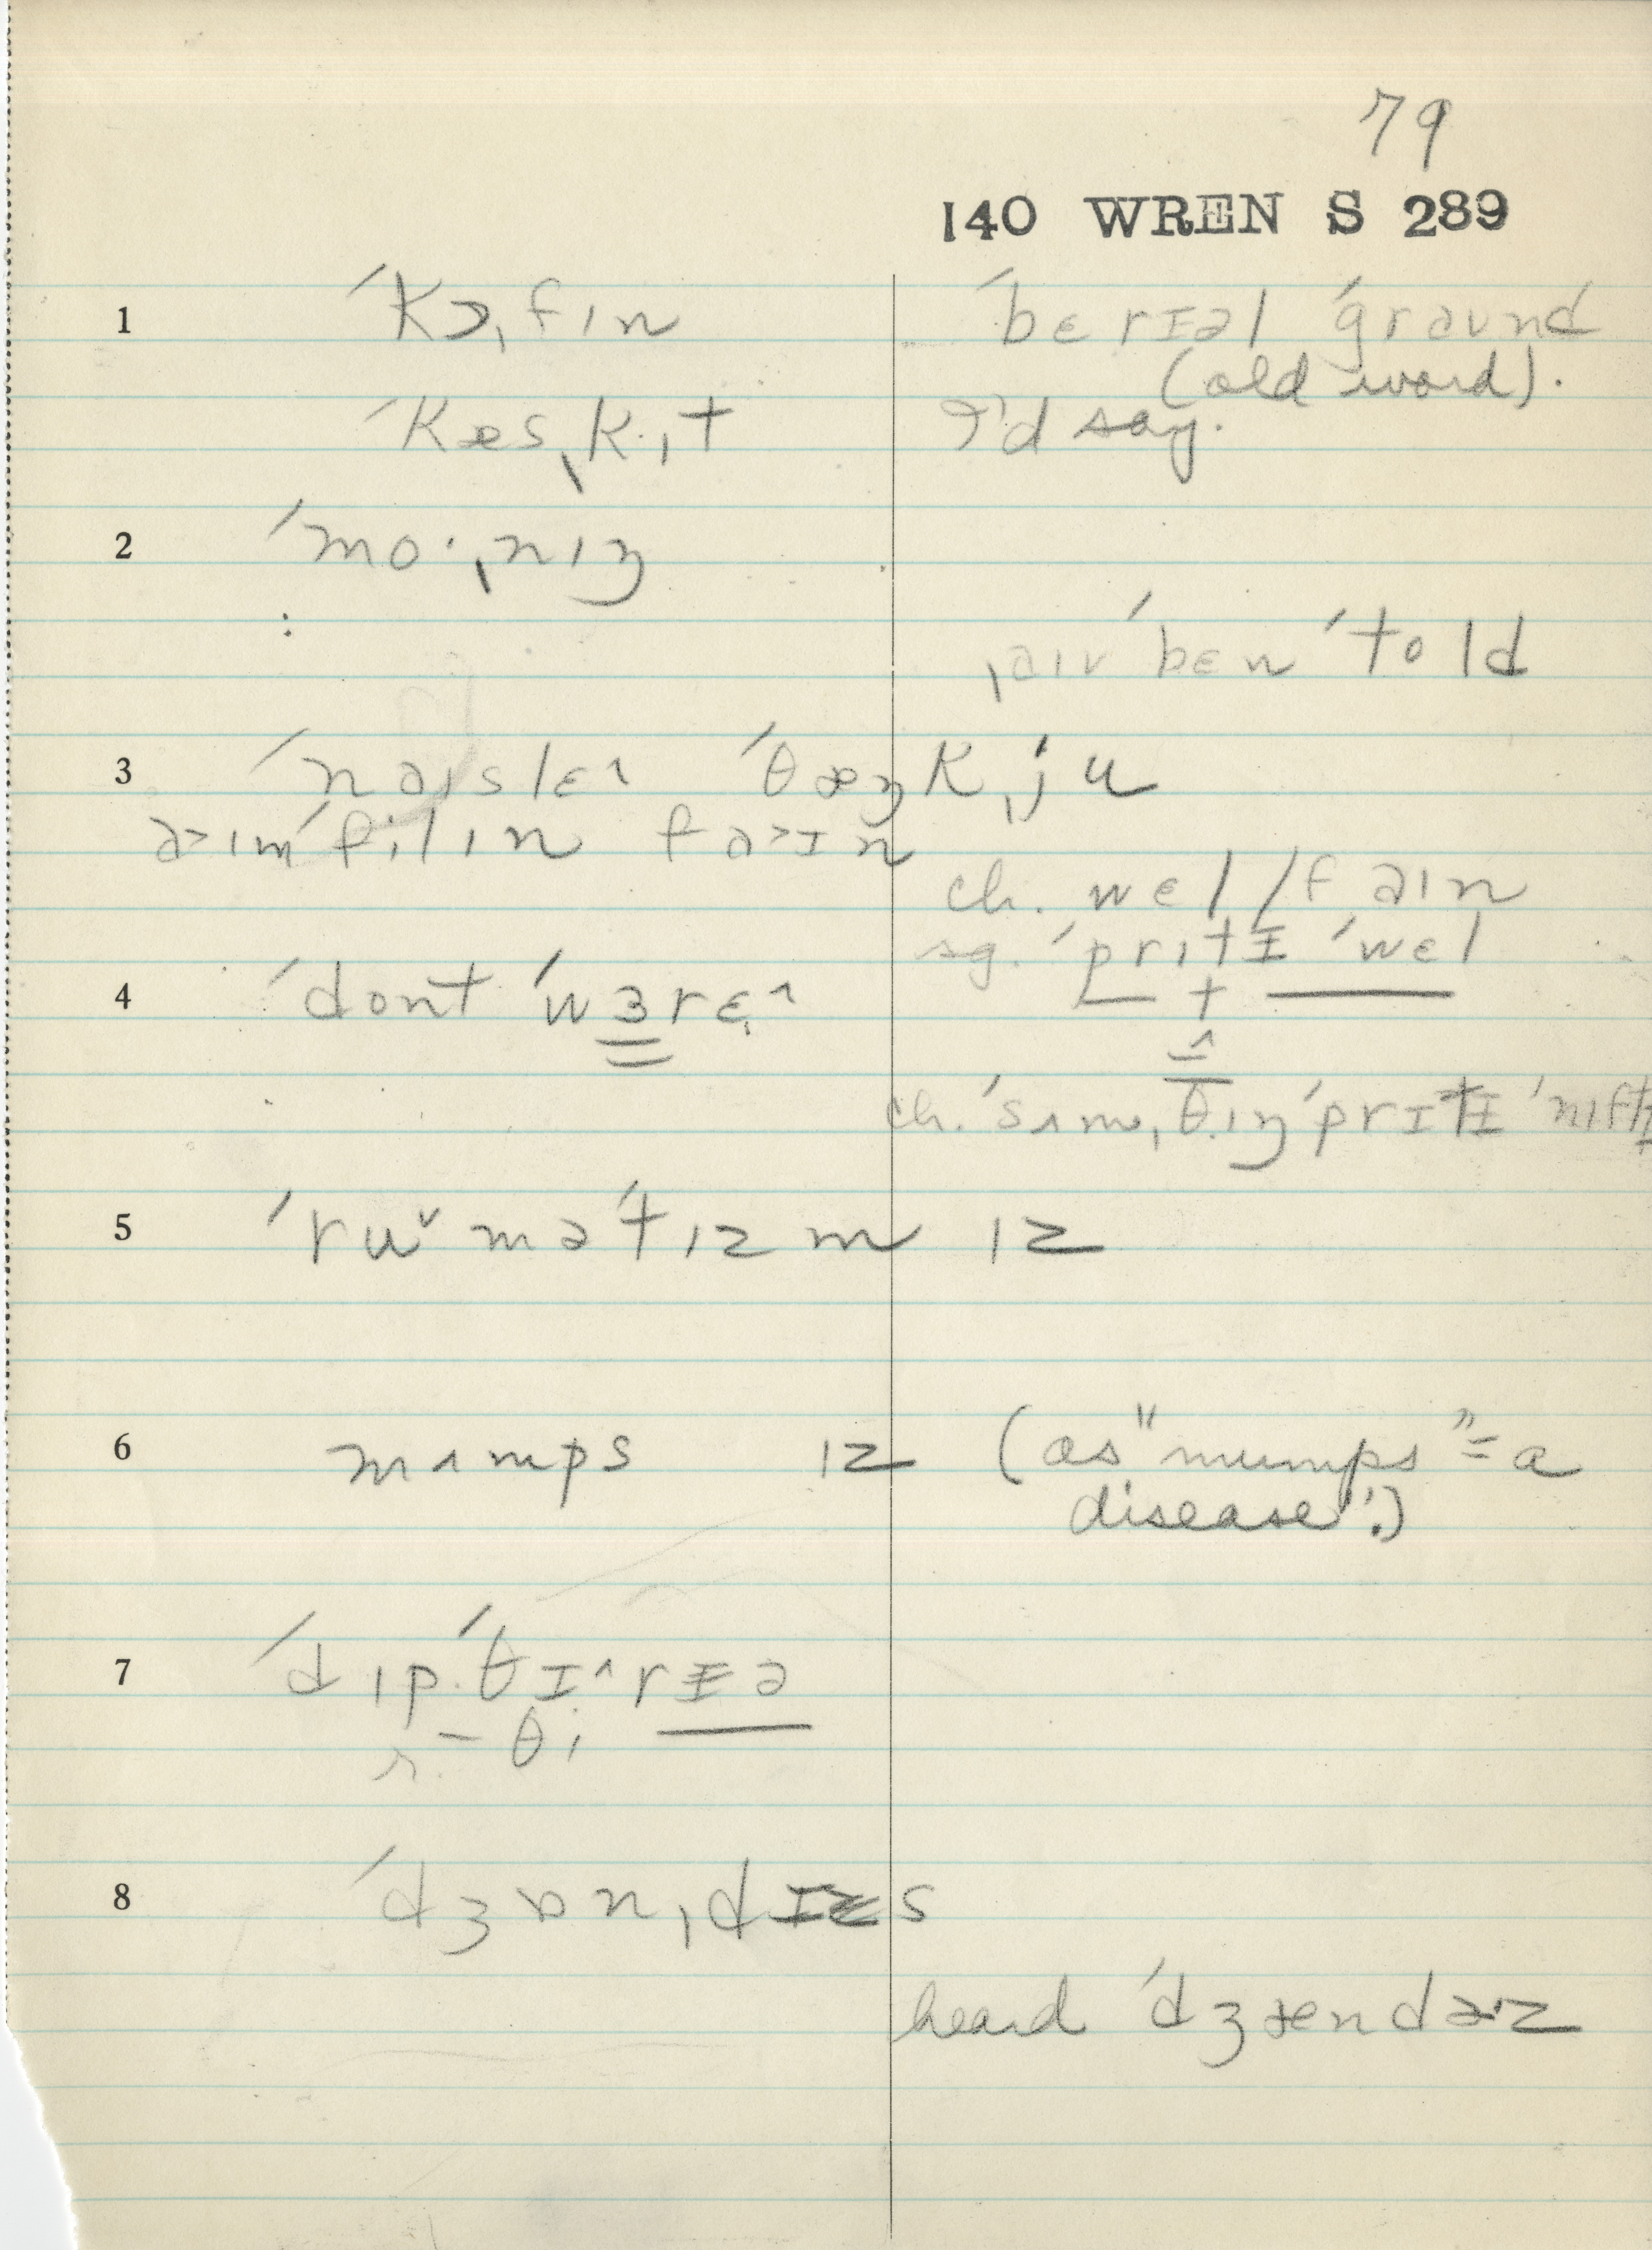 79
140 WREN S 289
1 ˈkɔˌfɪn ˈbɛrɪəl ˈgraʊnd
(old word).
ˈkæsˌk.ɪt I'd say.
2 ˈmo·ˌnɪŋ
ˌaɪv ˈbɛn ˈtold
3 ˈnaɪslɛ^ ˈθæŋkˌju
a>ɪm ˈfilɪn fa>ɪn
ch. wɛl / faɪn
sg. ˈprɪtɪ ˈwɛl
4 ˈdont ˈwɜrɛ^
ch. ˈsʌmˌθɪŋ ˈprɪtɪ ˈnɪftɪ
5 ˈruˇməˈtɪzm ɪz
6 mʌmps ɪz (as "mumps" = a
disease!)
7 ˈdɪp.ˈθɪ^rɪə
r. – θi
8 ˈdʒɒnˌdɪs
heard ˈdʒændɚz